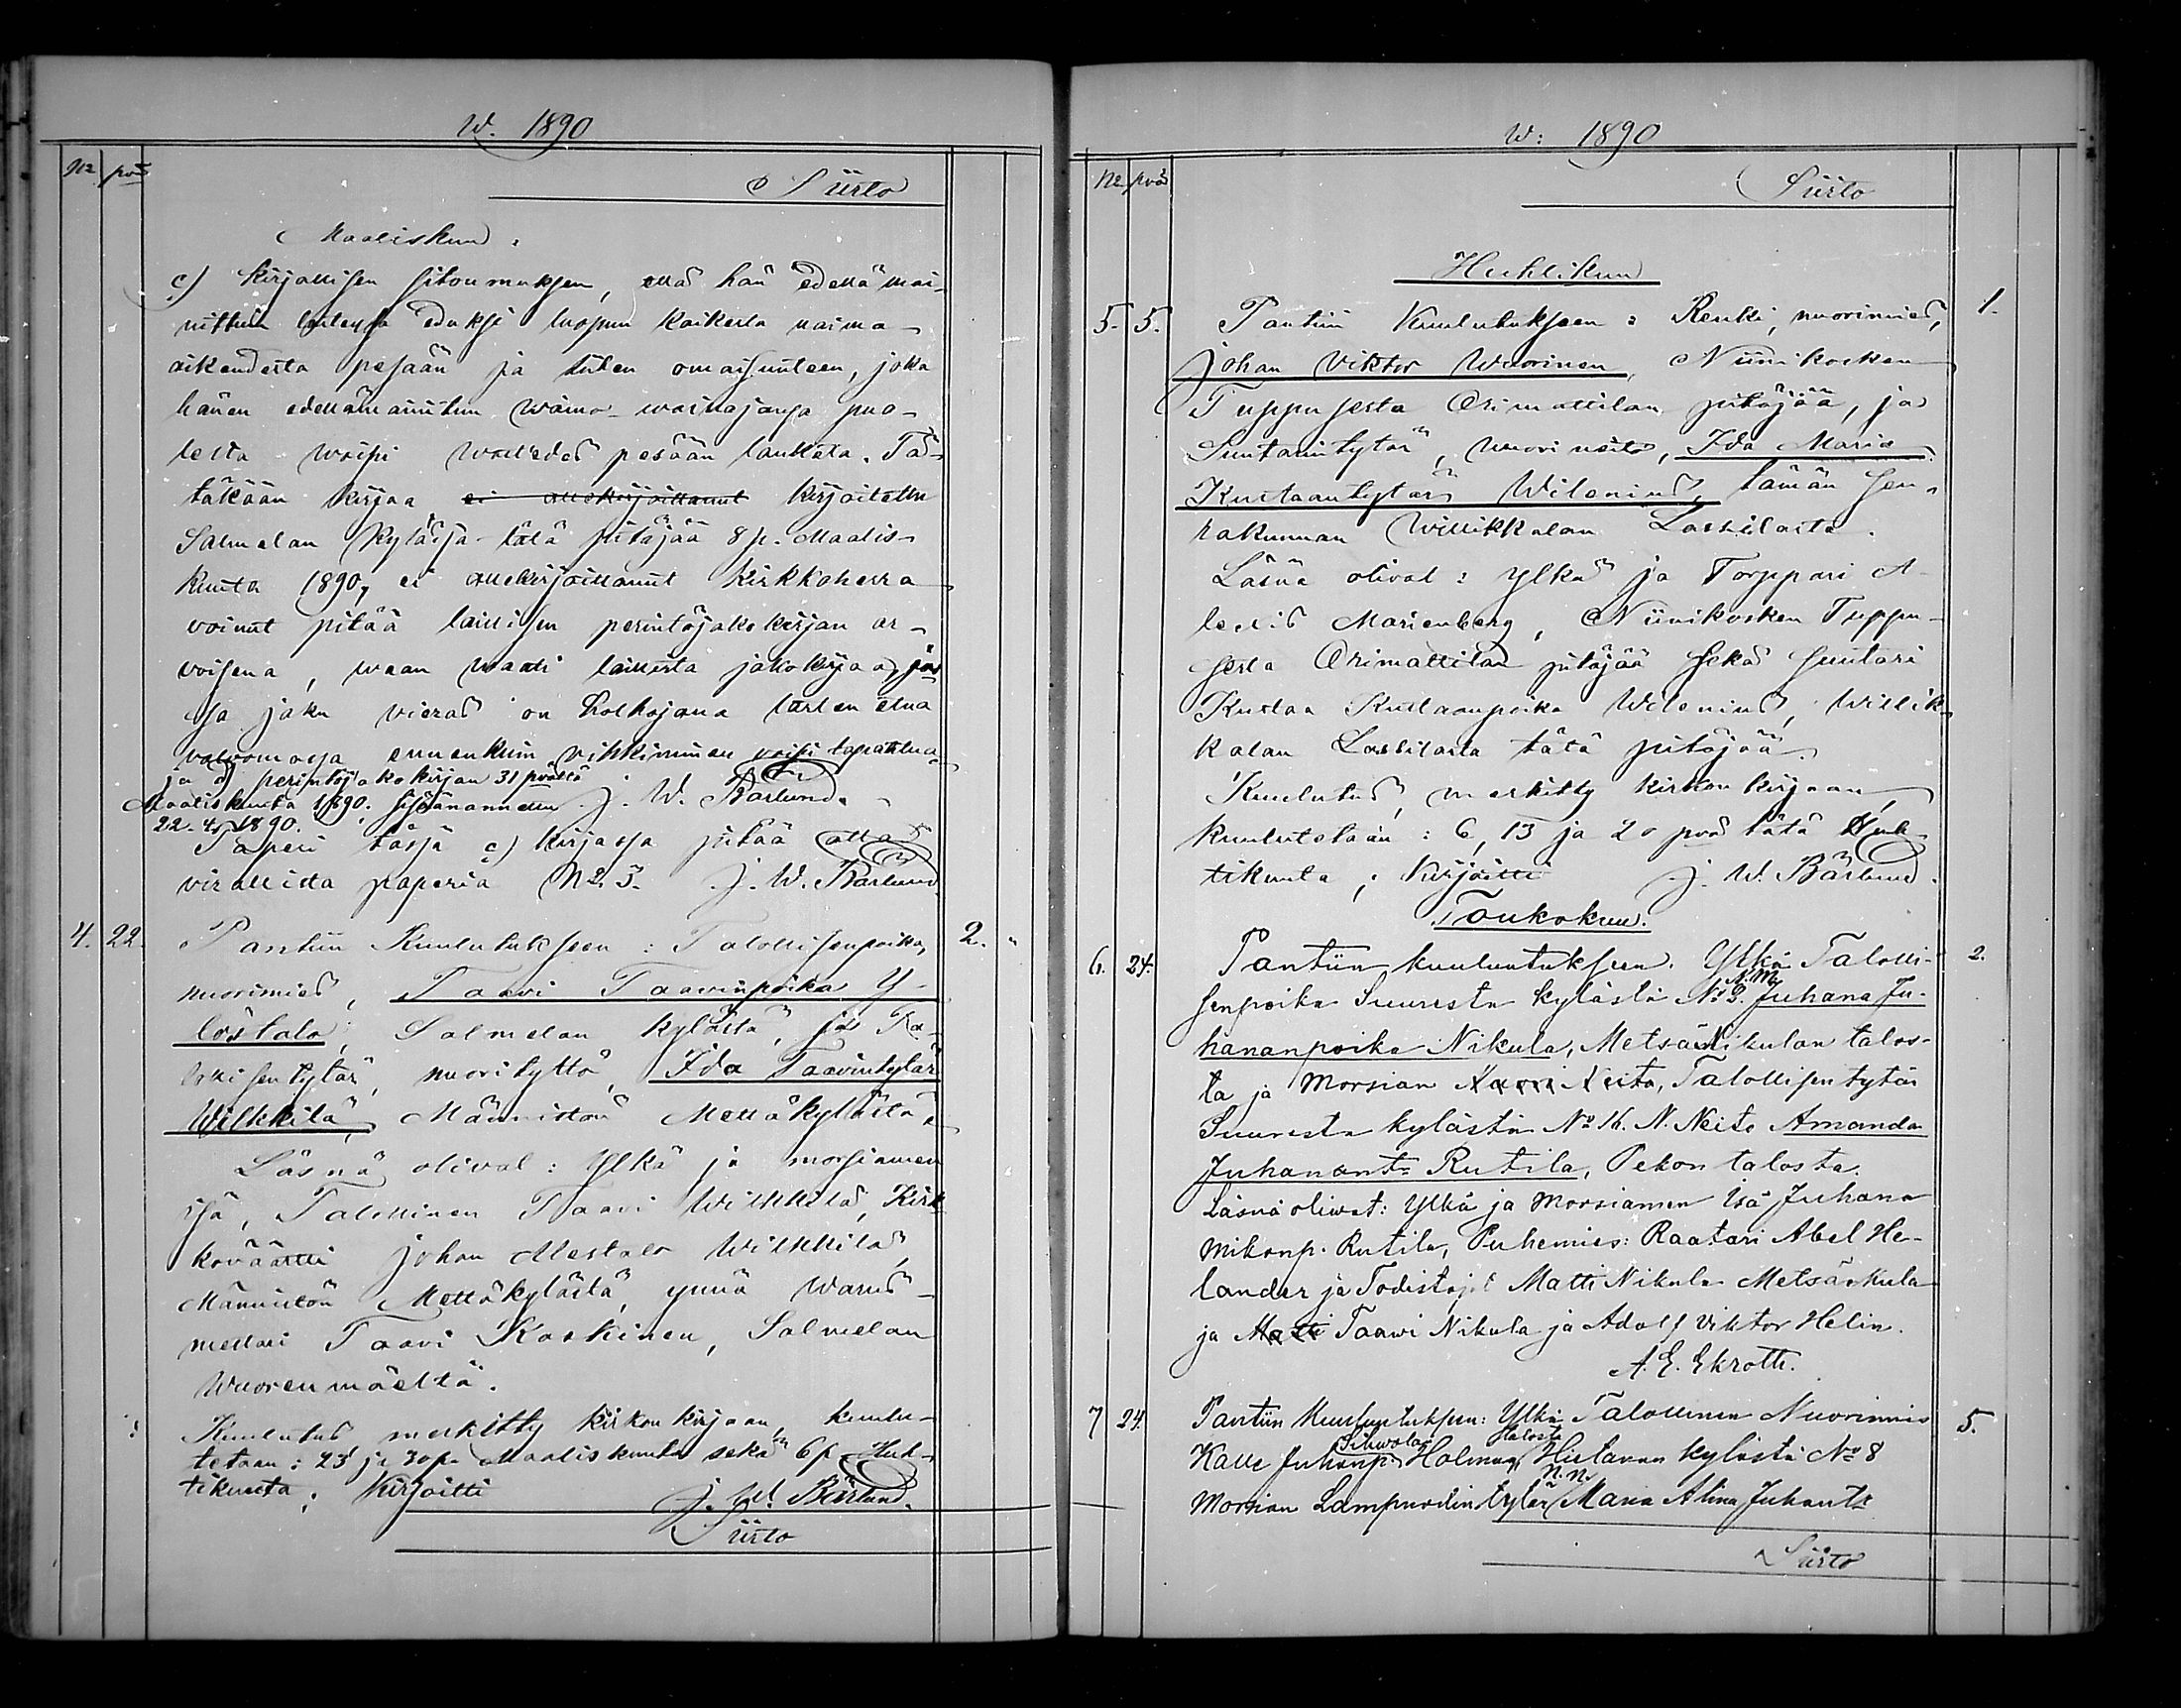 W. 1890
No pvä
Siirto
Maaliskuu:
c) Kirjallisen sitoumuksen, että hän edellämai-
nittuin lasten eduksi luopuu kaikesta naima-
oikeudesta pesään ja siihen omaisuuteen, joka
hänen edellämainitun waimo-wainajansa puo-
lesta woisi pesään tulla. Täl-
täkään kirjaa ei allekirjoittanut kirjoitettu
Salmelan Kylässä tätä pitäjää 8 p. Maalis-
kuuta 1890, ei allekirjoittanut Kirkkoherra
voinut pitää laillisen perintöjakokirjan ar-
voisena, waan waati laillista jakokirjaa, jos-
sa joku vieras on holhojana lasten etua
valvomassa ennenkuin vihkiminen voisi tapahtua
ja d) perintöjakokirjan 31 pvältä
Maaliskuuta 1890. sisäänannettu J. W. Bärlund.
22-4-1890.
Paperi tässä c) kirjassa pitää olla
virallista paperia No 3. J. W. Bärlund.
4. 22. Pantiin Kuulutukseen: Talollisenpoika, 2. "
nuorimies, Taavi Taavinpoika Y-
löstalo, Salmelan kylästä, ja Ta-
lollisentytär, nuori tyttö, Ida Taavintytär
Wilkkilä, Männistön Mettäkylästä.
Läsnä olivat: Ylkä ja morsiamen
isä, Talollinen Taavi Wilkkilä, Kirk-
koväärtti Johan Alestalo Wilkkilä,
Männistön Mettäkylästä, ynnä
Taavi Koskinen, Salmelan
Wuorenmäeltä.
Kuulutus merkitty kirkonkirjaan, kuulu-
tetaan: 23 ja 30 p. Maaliskuuta sekä 6 p Huh-
tikuuta; Kirjoitti J. W. Bärlund.
Siirto
W: 1890
No pvä
Siirto
Huhtikuu
5. 5. Pantiin Kuulutukseen: Renki, nuorimies, 1.
Johan Viktor Wuorinen, Niinikosken
Tuppusesta Orimattilan pitäjää, ja
Suutarintytär, nuori neito, Ida Maria
Kustaantytär Wilenius, tämän Seu-
rakunnan Willikkalan Lassilasta.
Läsnä olivat: Ylkä ja Torppari A-
leksis Marienberg, Niinikosken Tuppu-
sesta Orimattilan pitäjää sekä Suutari
Kustaa Kustaanpoika Wilenius, Willik-
kalan Lassilasta tätä pitäjää.
Kuulutus, merkitty kirkonkirjaan,
kuulutetaan: 6, 13 ja 20 pvä tätä Huh-
tikuuta; Kirjoitti J. W. Bärlund.
Toukokuu.
6. 24. Pantiin kuuluutukseen. Ylkä Talolli- 2.
senpoika Suuresta kylästä No 3. N. M. Juhana Ju-
hananpoika Nikula, MetsäNikulan talos-
ta ja Morsian Nuori Neito, Talollisen tytär
Suuresta kylästä No 16. N. Neito Amanda
Juhanant: Rutila, Pekon talosta.
Läsnä oliwat: Ylkä ja Morsiamen Isä Juhana
Mikonp. Rutila, Puhemies: Raatari Abel He-
lander ja Todistajat Matti Nikula Metsänkula
ja Matti Taawi Nikula ja Adolf Viktor Helin.
A. E. Ekroth.
7 24. Pantiin Kuuluutuksen: Ylkä Talollinen Nuorimies 5.
Kalle Juhanp. Holma, Sihwolan Talosta Hietanan kylästä No 8
Morsian Lampuodintytär N. n. Maria Alina Juhant:
Siirto